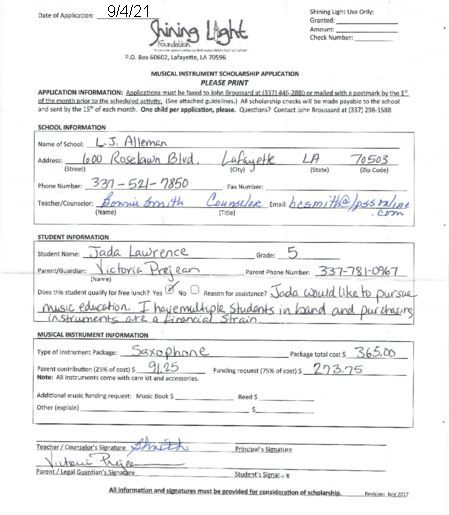 Date of Application: 9/4/21
Shining Light
Foundation
P.O. Box 60602, Lafayette, LA 70596
Shining Light Use Only:
Granted:
Amount:
Check Number:
MUSICAL INSTRUMENT SCHOLARSHIP APPLICATION
PLEASE PRINT
APPLICATION INFORMATION: Applications must be faxed to John Broussard at (337) 446-2880 or mailed with a postmark by the 1st
of the month prior to the scheduled activity. (See attached guidelines.) All scholarship checks will be made payable to the school
and sent by the 15th of each month. One child per application, please. Questions? Contact John Broussard at (337) 298-1588.
SCHOOL INFORMATION
Name of School: L.J. Alleman
Address: 600 Roselawn Blvd. Lafayette LA 70503
(Street) (City) (State) (Zip Code)
Phone Number: 337-521-7850 Fax Number:
Teacher/Counselor: Bonnie Smith Counselor Email: bcsmith@lpssonline
.com
(Name) (Title)
STUDENT INFORMATION
Student Name: Jada Lawrence Grade: 5
Parent/Guardian: Victoria Prejean Parent Phone Number: 337-781-0967
(Name)
Does this student qualify for free lunch? Yes No Reason for assistance? Jada would like to pursue
music education. I have multiple students in band and purchasing
instruments are a financial strain.
MUSICAL INSTRUMENT INFORMATION
Type of Instrument Package: Saxophone Package total cost $ 365.00
Parent contribution (25% of cost) $ 91.25 Funding request (75% of cost) $ 273.75
Note: All instruments come with care kit and accessories.
Additional music funding request: Music Book $ Reed $
Other (explain) $
Teacher / Counselor's Signature Principal's Signature
Victoria Prejean
Parent / Legal Guardian's Signature Student's Signature
All information and signatures must be provided for consideration of scholarship. Revision: July 2017